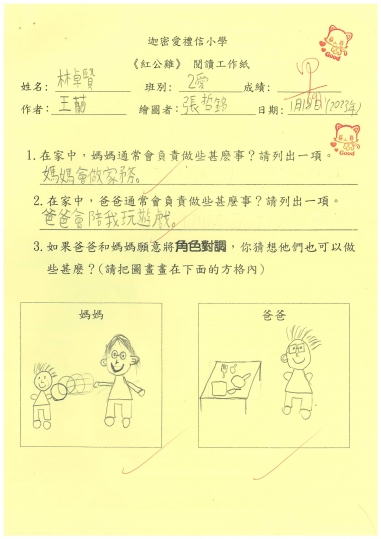 迦密愛禮信小學
《紅公雞》 閱讀工作紙
姓名: 林卓賢 班別: 2愛 成績: 甲
作者: 王蘭 繪圖者: 張哲銘 日期: 1月18日(2023年)
Good
1. 在家中，媽媽通常會負責做些甚麼事？請列出一項。
媽媽會做家務。
Good
2. 在家中，爸爸通常會負責做些甚麼事？請列出一項。
爸爸會陪我玩遊戲。
3. 如果爸爸和媽媽願意將角色對調，你猜想他們也可以做
些甚麼？(請把圖畫畫在下面的方格內)
媽媽 爸爸